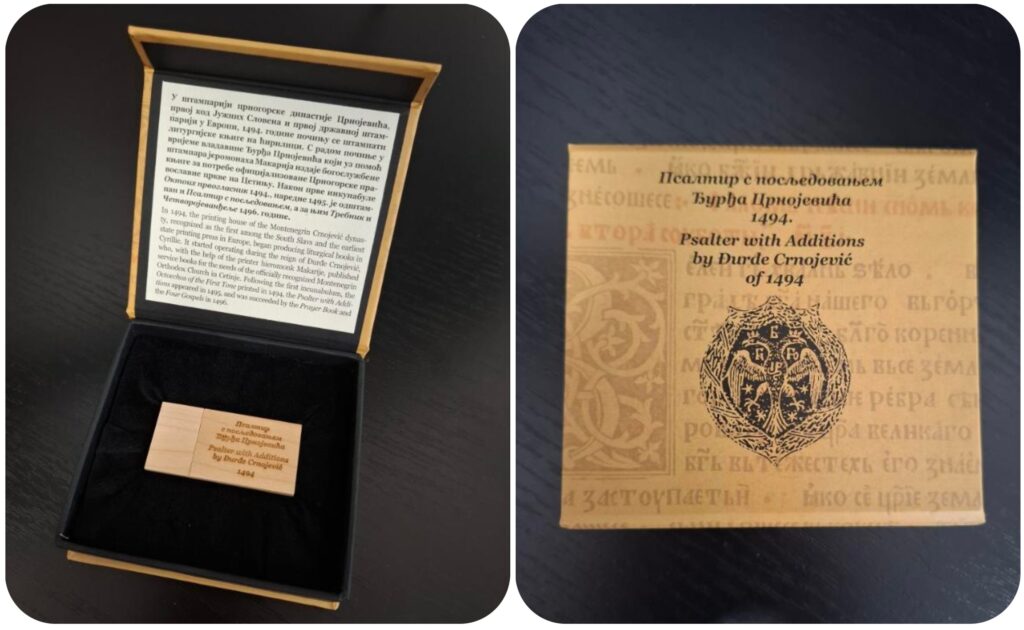 У штампарији црногорске династије Црнојевића,
првој код Јужних Словена и првој државној штам-
парији у Европи, 1494. године почињу се штампати
литургијске књиге на ћирилици. С радом почиње у
вријеме владавине Ђурђа Црнојевића који уз помоћ
штампара јеромонаха Макарија издаје богослужбене
књиге за потребе официјализоване Црногорске пра-
вославне цркве на Цетињу. Након прве инкунабуле
Октоиха првогласник 1494., наредне 1495. је одштам-
пан и Псалтир с посљедовањем, а за њим Требник и
Четворојеванђеље 1496. године.
In 1494, the printing house of the Montenegrin Crnojević dynas-
ty, recognized as the first among the South Slavs and the earliest
state printing press in Europe, began producing liturgical books in
Cyrillic. It started operating during the reign of Đurđe Crnojević,
who, with the help of the printer hieromonk Makarije, published
service books for the needs of the officially recognized Montenegrin
Orthodox Church in Cetinje. Following the first incunabulum, the
Octoechos of the First Tone printed in 1494, the Psalter with Addi-
tions appeared in 1495, and was succeeded by the Prayer Book and
the Four Gospels in 1496.
Псалтир
с посљедовањем
Ђурђа Црнојевића
Psalter with Additions
by Đurđe Crnojević
1494
Псалтир с посљедовањем
Ђурђа Црнојевића
1494.
Psalter with Additions
by Đurđe Crnojević
of 1494